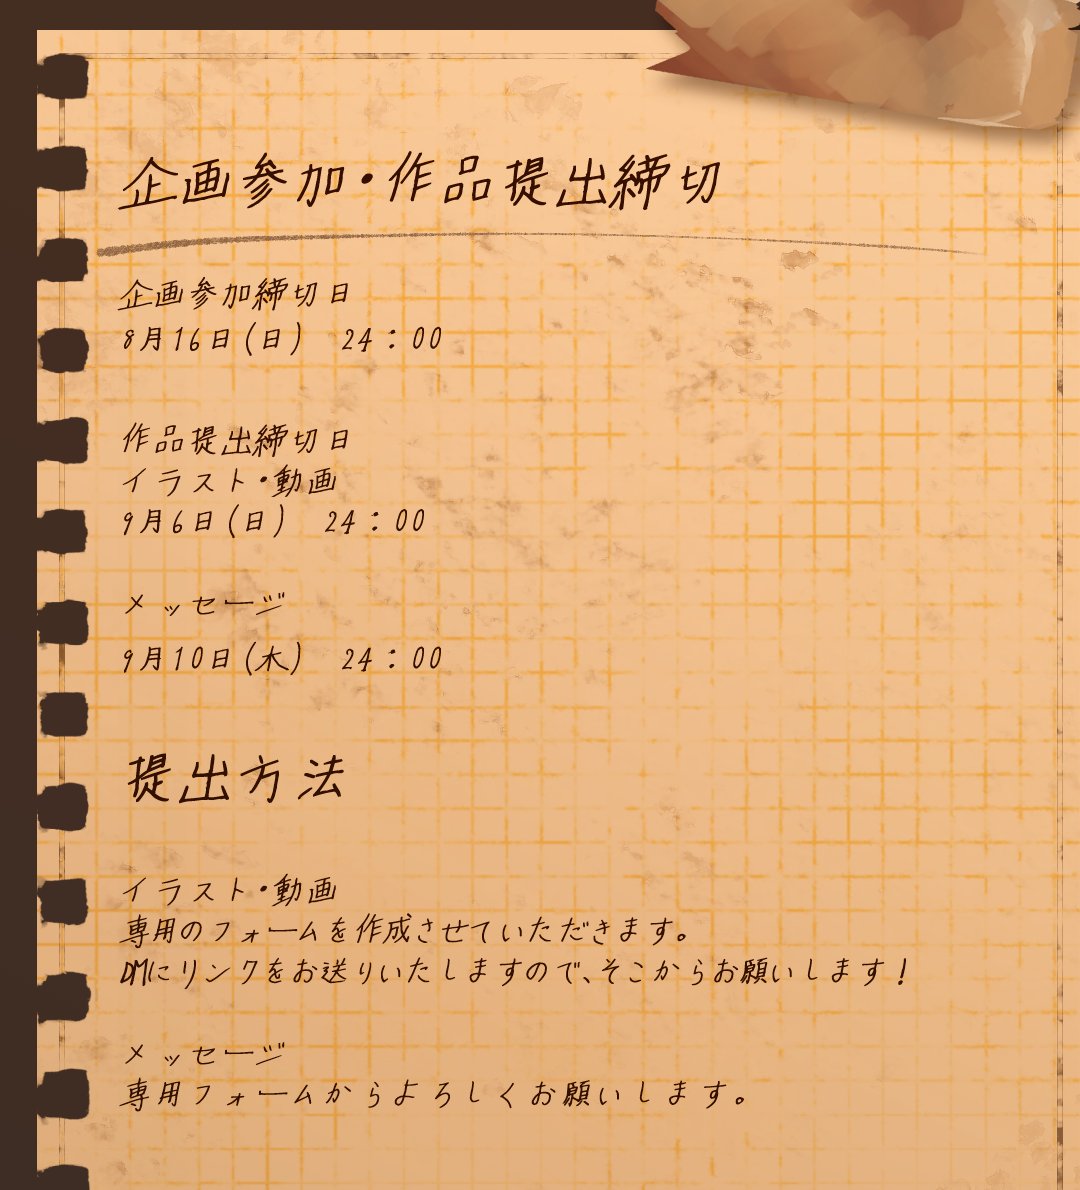 企画参加・作品提出締切
企画参加締切日
8月16日(日) 24：00
作品提出締切日
イラスト・動画
9月6日(日) 24：00
メッセージ
9月10日(木) 24：00
提出方法
イラスト・動画
専用のフォームを作成させていただきます。
DMにリンクをお送りいたしますので、そこからお願いします！
メッセージ
専用フォームからよろしくお願いします。